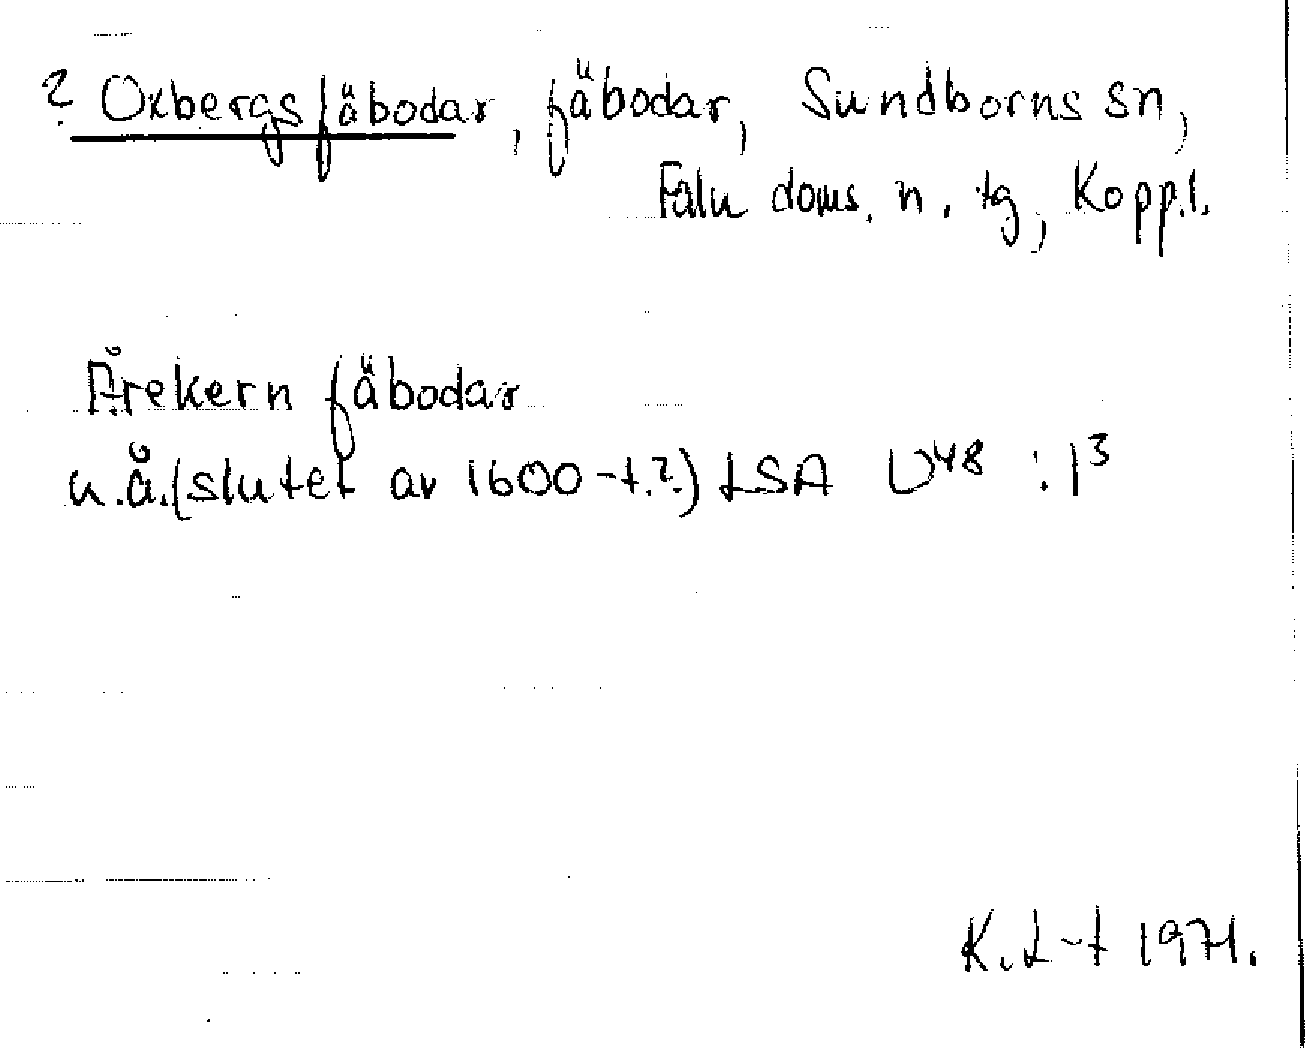 ? Oxbergs fäbodar, fäbodar, Sundborns sn,
Falu doms. n. tg, Kopp.l.
Årekern fäbodar
u.å. (slutet av 1600-t.?) LSA U48 : 1³
K. L-t 1971.